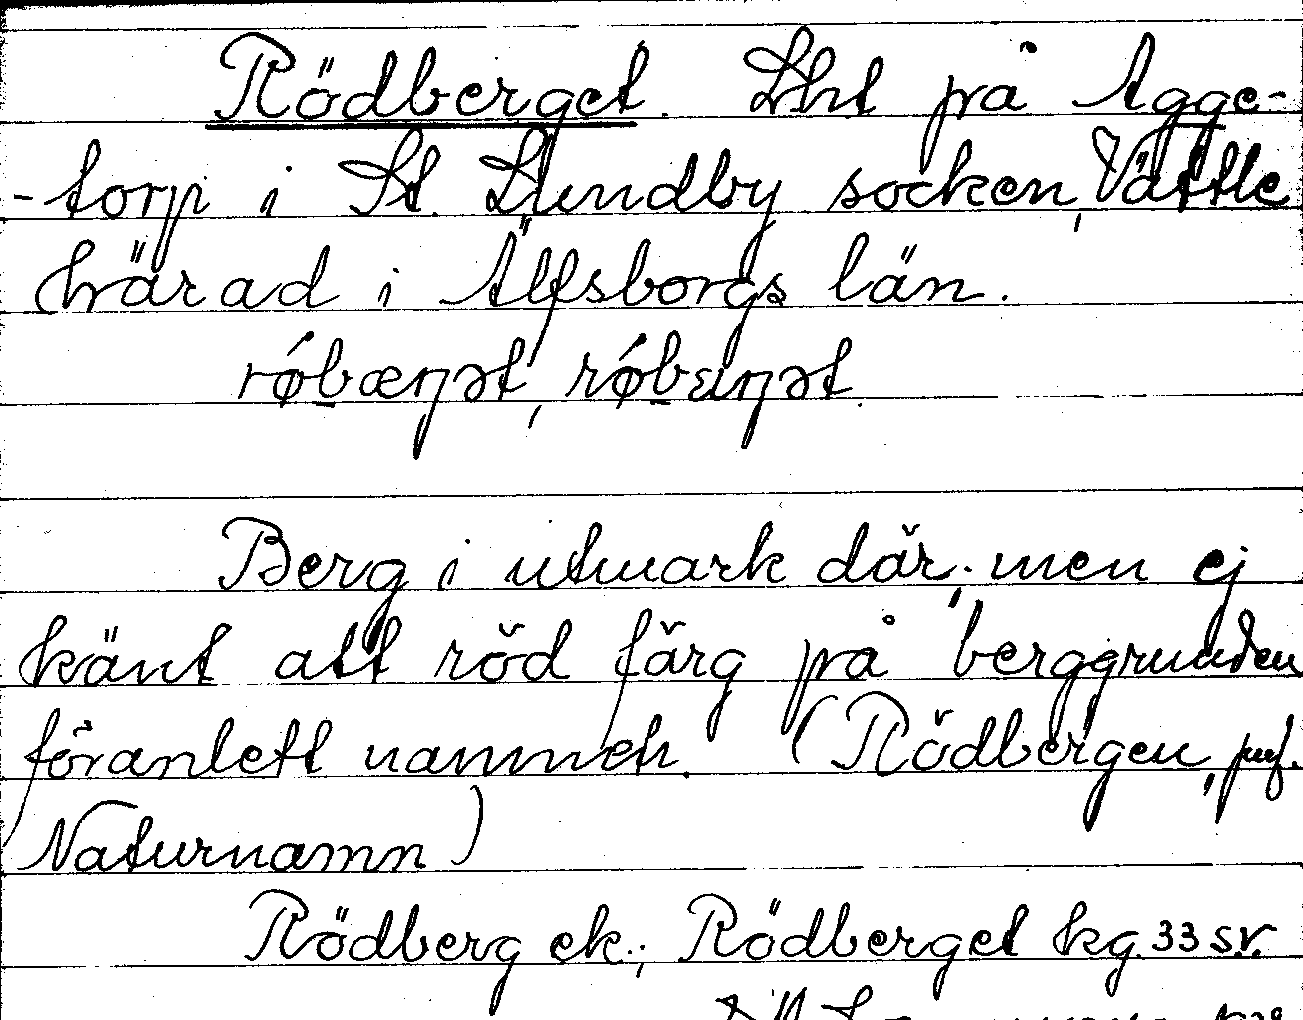 Rödberget. Lht på Agge-
-torp i St. Lundby socken, Vättle
härad i Älfsborgs län.
róbæŋət, róbaŋət.
Berg i utmark där; men ej
känt att röd färg på berggrunden
föranlett namnet. (Rödbergen, jmf.
Naturnamn)
Rödberg ek.; Rödberget kg. 33 sv.